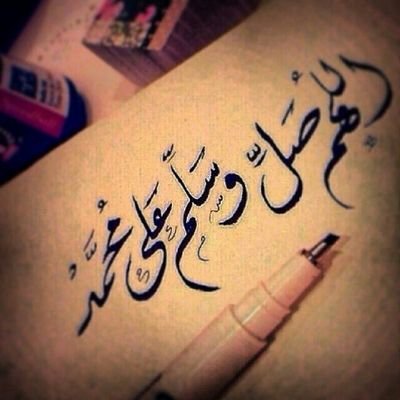 اللهم صَلِّ وَسَلِّم عَلى مُحَمَّدْ